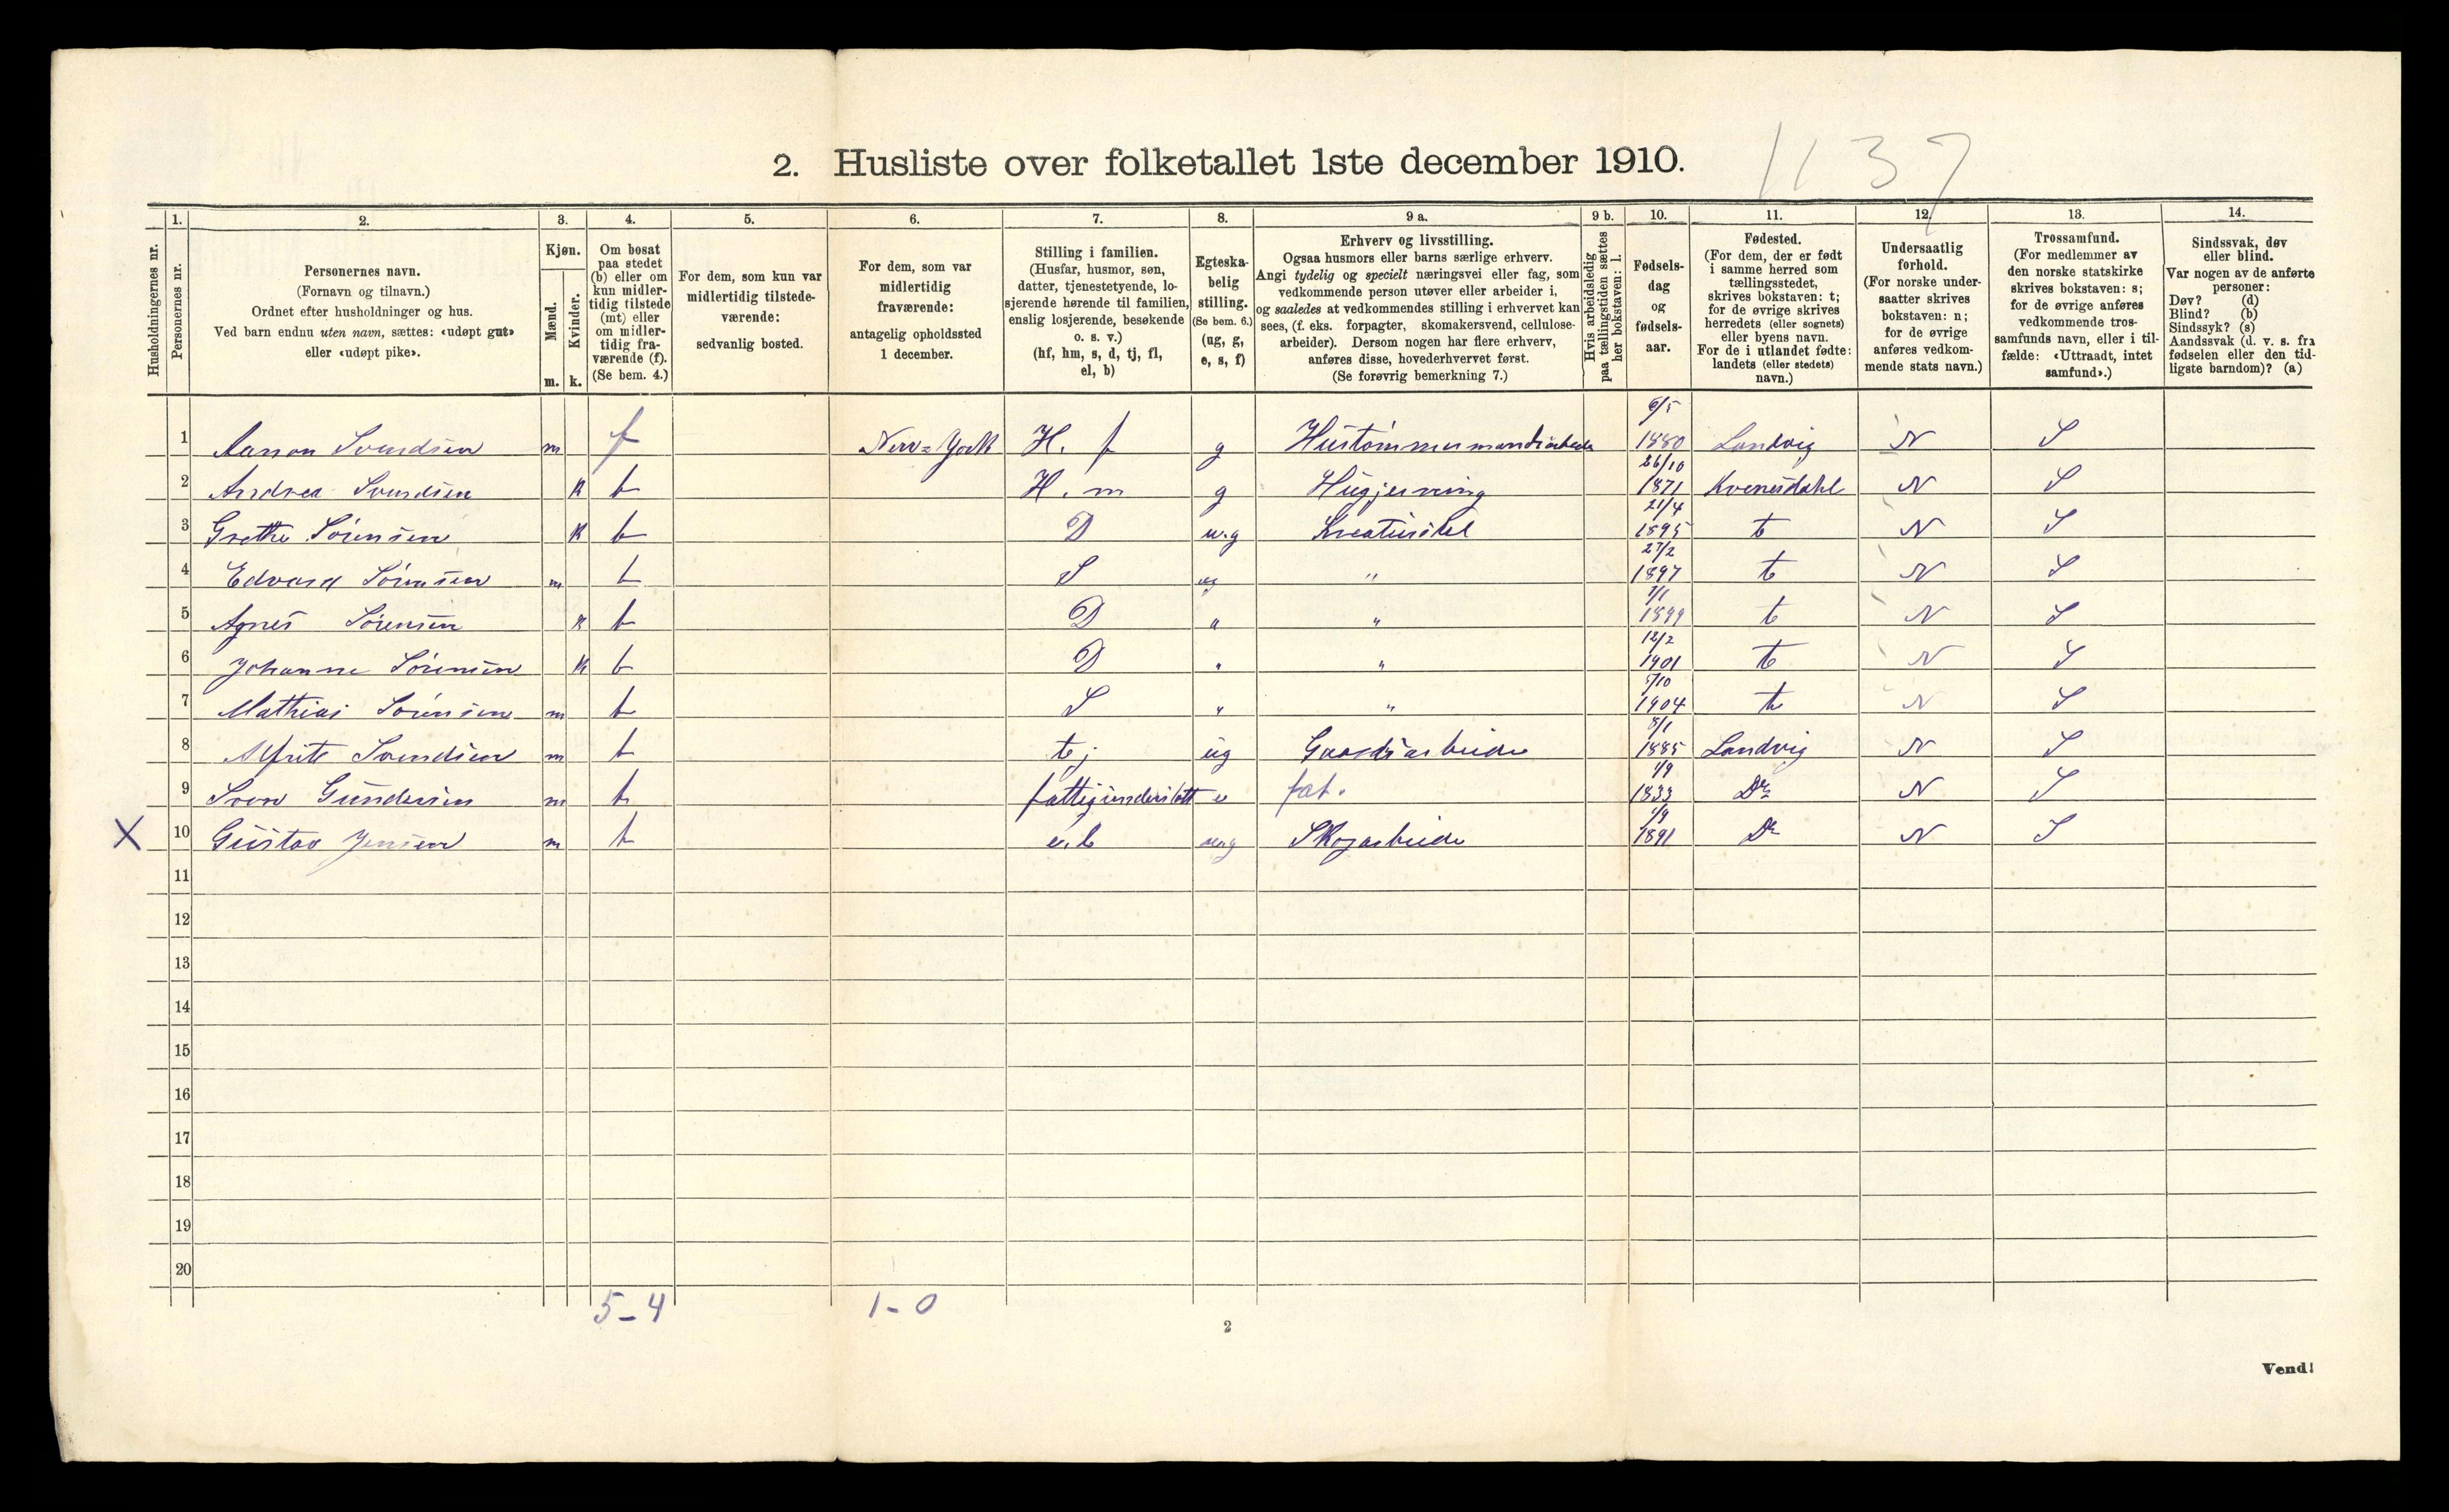 1137
2. Husliste over folketallet 1ste december 1910.
Husholdningernes nr.
1. Personernes nr.
2. Personernes navn. (Fornavn og tilnavn.) Ordnet efter husholdninger og hus. Ved barn endnu uten navn, sættes: «udøpt gut» eller «udøpt pike».
3. Kjøn. Mænd. m. Kvinder. k.
4. Om bosat paa stedet (b) eller om kun midlertidig tilstede (mt) eller om midlertidig fraværende (f). (Se bem. 4.)
5. For dem, som kun var midlertidig tilstedeværende: sedvanlig bosted.
6. For dem, som var midlertidig fraværende: antagelig opholdssted 1 december.
7. Stilling i familien. (Husfar, husmor, søn, datter, tjenestetyende, losjerende hørende til familien, enslig losjerende, besøkende o. s. v.) (hf, hm, s, d, tj, fl, el, b)
8. Egteskabelig stilling. (Se bem. 6.) (ug, g, e, s, f)
9 a. Erhverv og livsstilling. Ogsaa husmors eller barns særlige erhverv. Angi tydelig og specielt næringsvei eller fag, som vedkommende person utøver eller arbeider i, og saaledes at vedkommendes stilling i erhvervet kan sees, (f. eks. forpagter, skomakersvend, cellulosearbeider). Dersom nogen har flere erhverv, anføres disse, hovederhvervet først. (Se forøvrig bemerkning 7.)
9 b. Hvis arbeidsledig paa tællingstiden sættes her bokstaven: l.
10. Fødselsdag og fødselsaar.
11. Fødested. (For dem, der er født i samme herred som tællingsstedet, skrives bokstaven: t; for de øvrige skrives herredets (eller sognets) eller byens navn. For de i utlandet fødte: landets (eller stedets) navn.)
12. Undersaatlig forhold. (For norske undersaatter skrives bokstaven: n; for de øvrige anføres vedkommende stats navn.)
13. Trossamfund. (For medlemmer av den norske statskirke skrives bokstaven: s; for de øvrige anføres vedkommende trossamfunds navn, eller i tilfælde: «Uttraadt, intet samfund».)
14. Sindssvak, døv eller blind. Var nogen av de anførte personer: Døv? (d) Blind? (b) Sindssyk? (s) Aandssvak (d. v. s. fra fødselen eller den tidligste barndom)? (a)
1 Aanon Svendsen m f New=York H. f g Hustømmermandsarbeide 6/5 1880 Landvig N S
2 Andrea Svendsen K b H. m g Husgjerning 26/10 1871 Kvinesdahl N S
3 Grethe Sørensen K b D u.g Kreaturstel 21/4 1895 t N S
4 Edvard Sørensen m b S ug " 27/2 1897 t N S
5 Agnes Sørensen K b D " " 7/1 1899 t N S
6 Johanne Sørensen K b D " " 12/2 1901 t N S
7 Mathias Sørensen m b S " " 5/10 1904 t N S
8 Alfrit Svendsen m b tj ug Gaardsarbeide 8/1 1885 Landvig N S
9 Sven Gundersen m b fattigunderstøtt e fat. 1/9 1833 Do N S
X 10 Gustav Jensen m b e.l ug Skogarbeide 1/9 1891 Do N S
11
12
13
14
15
16
17
18
19
20
5-4 1-0
2
Vend!